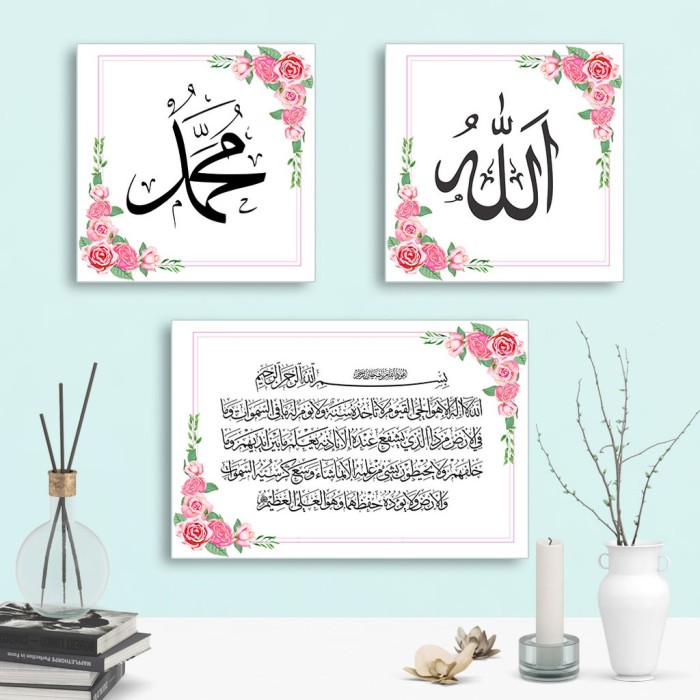 محمد
الله
بسم الله الرحمن الرحيم
الله لا إله إلا هو الحي القيوم لا تأخذه سنة ولا نوم له ما في السموات وما
في الأرض من ذا الذي يشفع عنده إلا بإذنه يعلم ما بين أيديهم وما
خلفهم ولا يحيطون بشيء من علمه إلا بما شاء وسع كرسيه السموات
والأرض ولا يؤده حفظهما وهو العلي العظيم
MAPPLETHORPE Perfection in Form